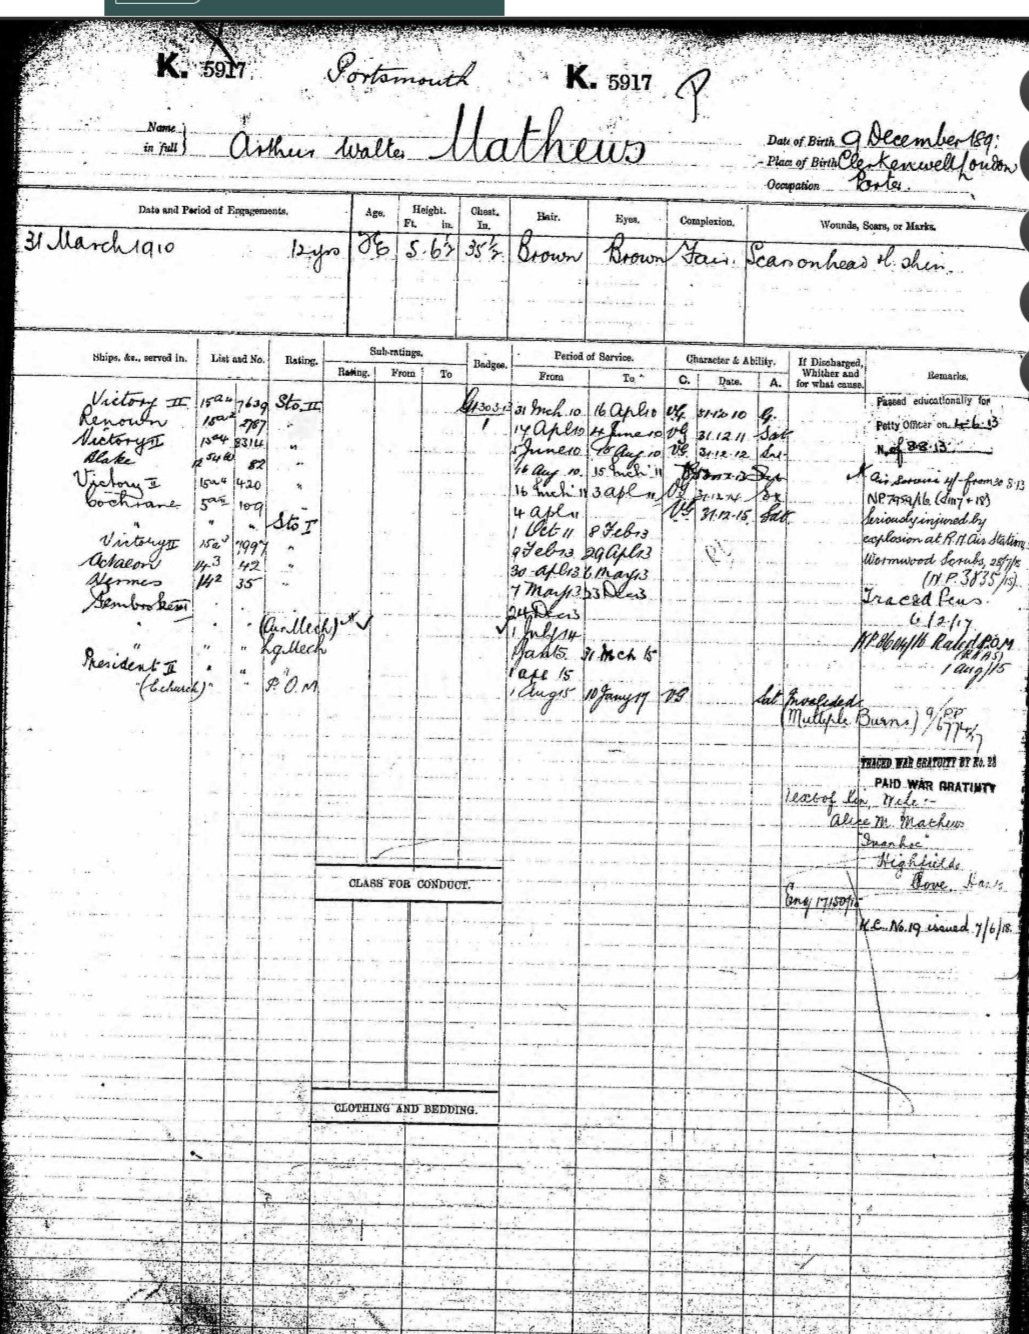 K. 5917 Portsmouth K. 5917 P
Name in full } Arthur Walter Mathews
Date of Birth 9 December 189
Place of Birth Clerkenwell London
Occupation Porter.
Date and Period of Engagements. Age. Height. Ft. in. Chest. In. Hair. Eyes. Complexion. Wounds, Scars, or Marks.
31 March 1910 12 yrs 5. 6½ 35½ Brown Brown Fair. Scar on head shin
Ships, &c., served in. List and No. Rating. Sub-ratings. Rating. From To Badges. Period of Service. From To Character & Ability. C. Date. A. If Discharged, Whither and for what cause. Remarks.
Victory II 15a4 7639 Sto. II 31 Mch. 10 16 Apl 10 VG 31.12.10 G.
Renown 15a2 2787 " 17 Apl 10 4 June 10 VG 31.12.11 Sat
Victory II 15a4 8314 " 5 June 10 15 Aug 10 VG 31.12.12
Blake 82 " 16 Aug 10 15 Mch 11
Victory II 15a4 420 " 16 Mch 11 3 Apl 11 VG 31.12.14
Cochrane 5a2 109 4 Apl 11 VG 31.12.15 Sat
" " " Sto I 1 Oct 11 8 Feb 13
Victory II 15a3 7997 " 9 Feb 13 29 Apl 13
Actaeon 14 3 42 " 30 Apl 13 6 May 13
Hermes 14 2 35 " 7 May 13 23 Dec 13
Pembroke III 24 Dec 13
" (Air Mech) 1 July 14
" " " Lg Mech 1 Jan 15 31 Mch 15
President II " " 1 Apl 15
" " P.O.M. 1 Aug 15 10 Jany 17 VG Sat Invalided
(Multiple Burns)
Passed educationally for
Petty Officer on
N. of 8.8.13
Air Service from 30.8.13
Seriously injured by
explosion at R.N. Air Station
Wormwood Scrubs,
(N.P. 3835/15)
Traced Pens.
6/2/17
Rated P.O.M
(RNAS)
1 Aug/15
TRACED WAR GRATUITY BY No. 28
PAID WAR GRATUITY
Next of Kin, Wife:-
Alice M. Mathews
"Ivanhoe"
Highfields
Cove, Hants
CLASS FOR CONDUCT.
No. 19 issued 7/6/18.
CLOTHING AND BEDDING.